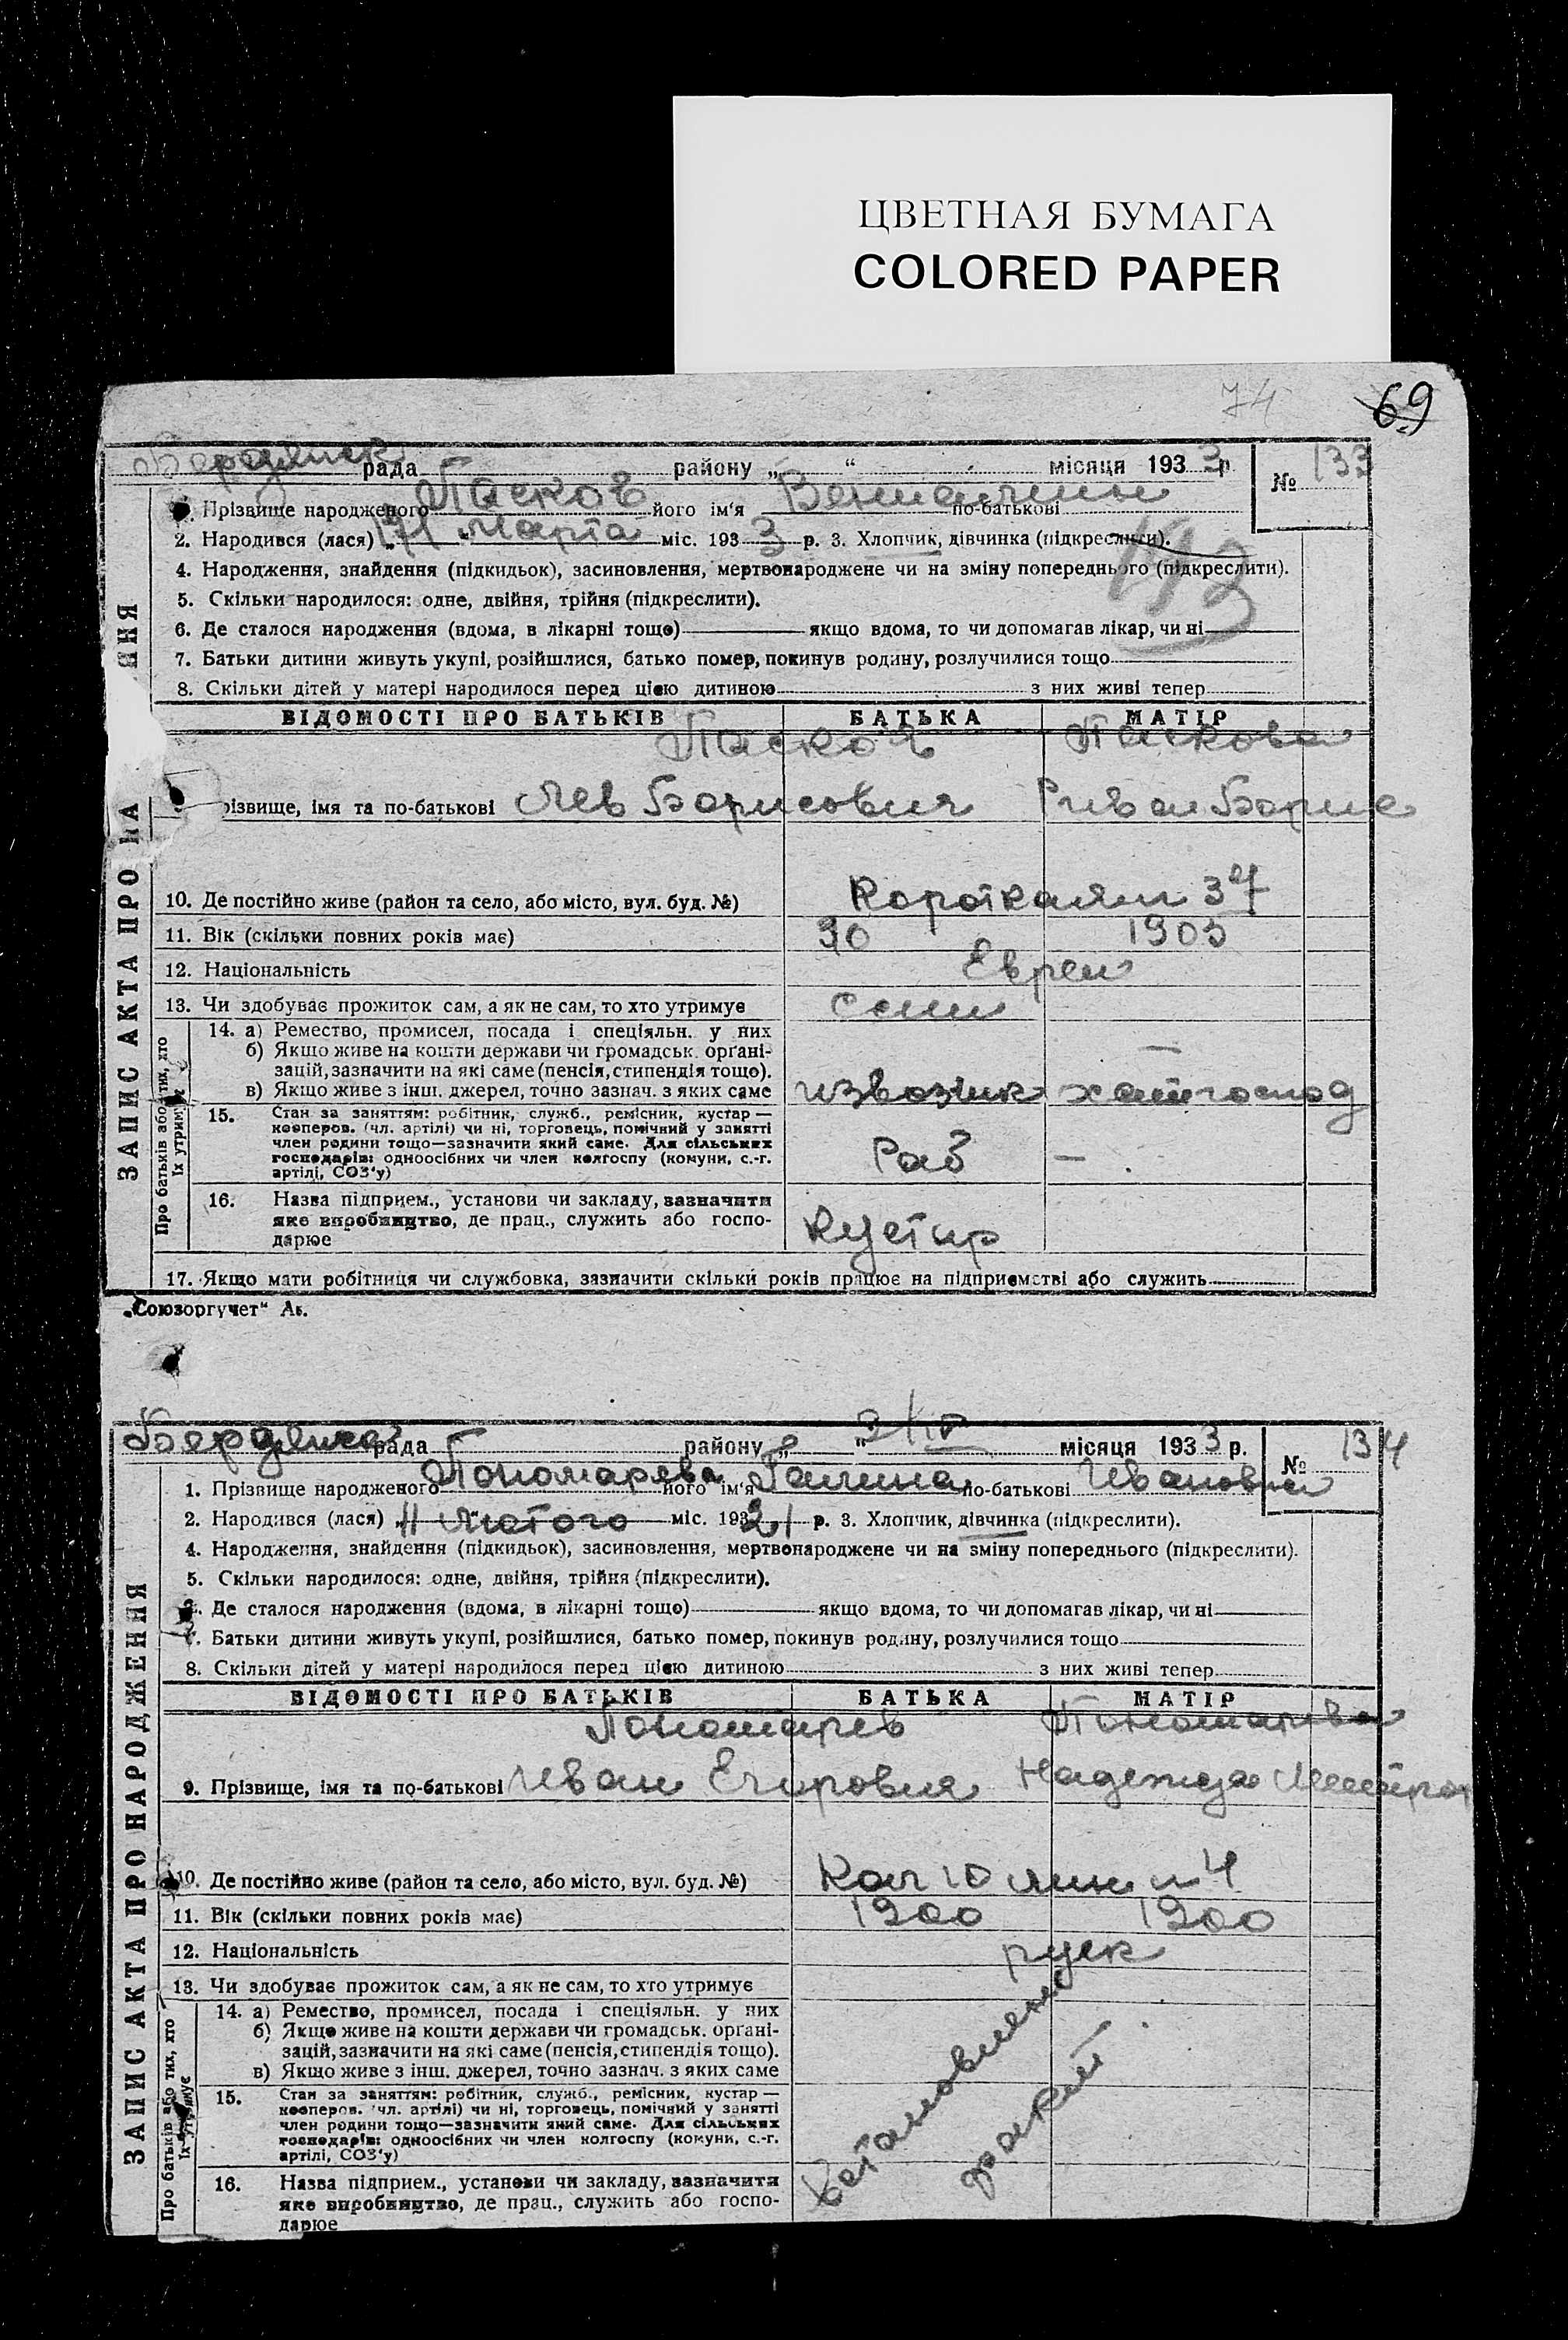 ЦВЕТНАЯ БУМАГА
COLORED PAPER
74 69
Бердянск рада району „ “ місяця 1933 р. № 133
Прізвище народженого Пасков його ім'я Вениамин по-батькові
2. Народився (лася) „ “ Марта міс. 1933 р. 3. Хлопчик, дівчинка (підкреслити).
4. Народження, знайдення (підкидьок), засиновлення, мертвонароджене чи на зміну попереднього (підкреслити).
5. Скільки народилося: одне, двійня, трійня (підкреслити).
6. Де сталося народження (вдома, в лікарні тощо) якщо вдома, то чи допомагав лікар, чи ні
7. Батьки дитини живуть укупі, розійшлися, батько помер, покинув родину, розлучилися тощо
8. Скільки дітей у матері народилося перед цією дитиною з них живі тепер
ВІДОМОСТІ ПРО БАТЬКІВ БАТЬКА МАТІР
Пасков Паскова
різвище, імя та по-батькові Лев Борисович Рива Борис
10. Де постійно живе (район та село, або місто, вул. буд. №) Короткая
11. Вік (скільки повних років має) 30 1903
12. Національність Евреи
13. Чи здобуває прожиток сам, а як не сам, то хто утримує сами
14. а) Ремество, промисел, посада і спеціяльн. у них —
б) Якщо живе на кошти держави чи громадськ. органі-
зацій, зазначити на які саме (пенсія, стипендія тощо).
в) Якщо живе з інш. джерел, точно зазнач. з яких саме извозчик хатн господ
15. Стан за заняттям: робітник, служб., ремісник, кустар —
кооперов. (чл. артілі) чи ні, торговець, помічний у занятті
член родини тощо—зазначити який саме. Для сільських
господарів: одноосібних чи член колгоспу (комуни, с.-г.
артілі, СОЗ'у) Раб —
16. Назва підприєм., установи чи закладу, зазначити
яке виробництво, де прац., служить або госпо-
дарює Кустар
17. Якщо мати робітниця чи службовка, зазначити скільки років працює на підприємстві або служить
ЗАПИС АКТА ПРО НА ННЯ
Про батьків або тих, хто
їх утримує
„Союзоргучет“ Ак.
рада району „ “ місяця 1933 р. № 134
1. Прізвище народженого Пономарева його ім'я Галина по-батькові Ивановна
2. Народився (лася) 11 Лютого міс. 193 р. 3. Хлопчик, дівчинка (підкреслити).
4. Народження, знайдення (підкидьок), засиновлення, мертвонароджене чи на зміну попереднього (підкреслити).
5. Скільки народилося: одне, двійня, трійня (підкреслити).
Де сталося народження (вдома, в лікарні тощо) якщо вдома, то чи допомагав лікар, чи ні
Батьки дитини живуть укупі, розійшлися, батько помер, покинув родину, розлучилися тощо
8. Скільки дітей у матері народилося перед цією дитиною з них живі тепер
ВІДОМОСТІ ПРО БАТЬКІВ БАТЬКА МАТІР
Пономарев Пономарева
9. Прізвище, імя та по-батькові Иван Егорович Надежда
10. Де постійно живе (район та село, або місто, вул. буд. №)
11. Вік (скільки повних років має) 1900 1900
12. Національність руск
13. Чи здобуває прожиток сам, а як не сам, то хто утримує
14. а) Ремество, промисел, посада і спеціяльн. у них
б) Якщо живе на кошти держави чи громадськ. органі-
зацій, зазначити на які саме (пенсія, стипендія тощо).
в) Якщо живе з інш. джерел, точно зазнач. з яких саме
15. Стан за заняттям: робітник, служб., ремісник, кустар —
кооперов. (чл. артілі) чи ні, торговець, помічний у занятті
член родини тощо—зазначити який саме. Для сільських
господарів: одноосібних чи член колгоспу (комуни, с.-г.
артілі, СОЗ'у)
16. Назва підприєм., установи чи закладу, зазначити
яке виробництво, де прац., служить або госпо-
дарює
ЗАПИС АКТА ПРО НАРОДЖЕННЯ
Про батьків або тих, хто
їх утримує